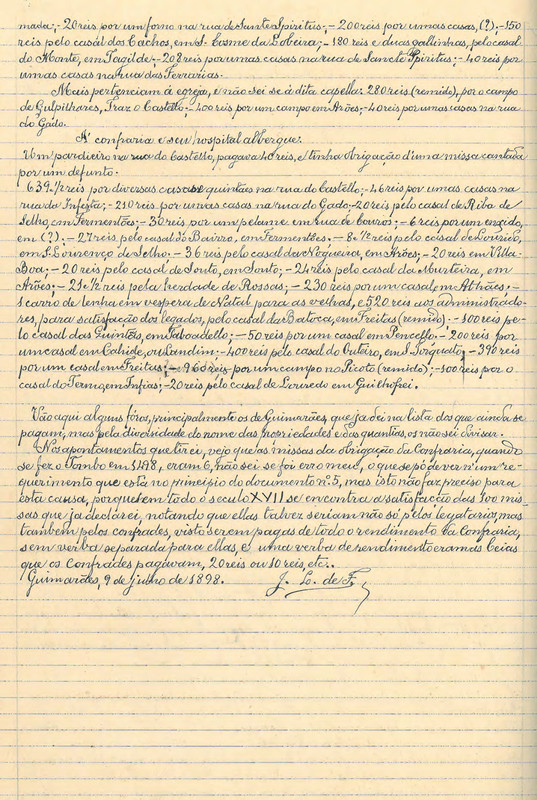 mada;- 20 reis por um forno na rua de Sancte Spiritus;- 200 reis por umas casas, (?),- 150
reis pelo casal dos Cachos, em S. Cosme da Lobeira;- 180 reis e duas gallinhas, pelo casal
do Monte, em Tagilde;- 20 reis por umas casas na rua de Sancte Spiritus;- 40 reis por
umas casas na rua das Ferrarias.
Mais pertenciam á egreja, e não sei se á dita capella: 280 reis (remido), por o campo
de Gulpilhares, Traz o Castello;- 400 reis por um campo em Arões;- 40 reis por umas casas na rua
do Gado.
A' confraria e seu hospital albergue:
Um pardieiro na rua do Castello, pagava 40 reis, e tinha obrigação d'uma missa cantada
por um defunto.
639 ½ reis por diversas casas e quintaes na rua do Castello;- 46 reis por umas casas na
rua da Infesta;- 210 reis por umas casas na rua do Gado;- 20 reis pelo casal de Riba de
Selho, em Fermentões;- 30 reis por um pelame em rua de Couros;- 6 reis por um engido,
em (?).- 27 reis pelo casal do Bairro, em Fermentões.- 80 ½ reis pelo casal de Lourido,
em S. Lourenço de Selho;- 36 reis pelo casal da Nogueira, em Arões;- 20 reis em Villa-
Boa;- 20 reis pelo casal de Souto, em Souto;- 24 reis pelo casal da Murteira, em
Arões;- 210 ½ reis pela herdade de Rossas;- 230 reis por um casal, em Athães;-
1 carro de lenha em vespera de Natal para as velhas, e 520 reis aos administrado-
res, para satisfação dos legados, pelo casal da Batoca, em Freitas (remido);- 100 reis pe-
lo casal das Quintãs, em Taboadello;- 50 reis por um casal em Pencello;- 200 reis por
um casal em Cahide, ou Landim;- 400 reis pelo casal do Outeiro, em S. Torquato;- 390 reis
por um casal em Freitas;- 960 reis por um campo no Picoto (remido);- 100 reis por o
casal do Termo, em Infias;- 20 reis pelo casal de Loriedo em Guilhofei.
Vão aqui alguns fóros, principalmente os de Guimarães, que ja dei na lista dos que ainda se
pagam, mas pela diversidade do nome das propriedades e das quantias, os não sei divisar.
Nos apontamentos que tirei, vejo que as missas da obrigação da Confraria, quando
se fez o Tombo em 1498, eram 6, não sei se foi erro meu, o que se póde ver n'um re-
querimento que está no principio do documento nº 5, mas isto não faz preciso para
esta causa, porque em todo o seculo XVII se encontra a satisfação das 400 mis-
sas que ja declarei, notando que ellas talvez seriam não só pelos legatarios, mas
tambem pelos confrades, visto serem pagas de todo o rendimento da Confraria,
sem verba separada para ellas, e uma verba de rendimento eram as beias
que os confrades pagavam, 20 reis ou 10 reis, etc..
Guimarães, 9 de Junho de 1898. J. L. de F.